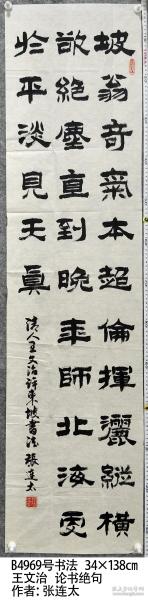 坡翁奇氣本超倫揮灑縱橫
欲絕塵直到晚年師北海更
於平淡見天真
清人王文治評東坡書法 張連太
B4969号书法 34×138cm
王文治 论书绝句
作者: 张连太